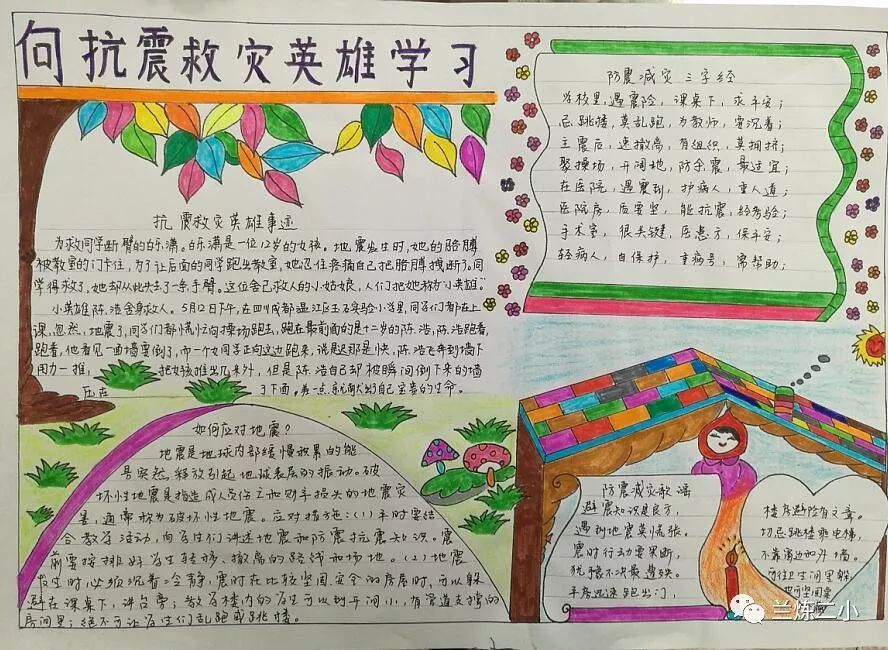 向抗震救灾英雄学习
抗震救灾英雄事迹
为救同学断臂的白乐潇。白乐潇是一位12岁的女孩。地震发生时,她的胳膊
被教室的门卡住,为了让后面的同学跑出教室,她忍住疼痛自己把胳膊拽断了。同
学得救了,她却从此失去了一条手臂。这位舍己救人的小姑娘,人们把她称为小英雄。
小英雄陈浩舍身救人。5月12日下午,在四川成都温江区玉石实验小学里,同学们都在上
课,忽然,地震了,同学们都慌忙向操场跑去,跑在最前面的是十二岁的陈浩,陈浩跑着,
跑着,他看见一面墙要倒了,而一个女同学正向这边跑来,说是迟那是快,陈浩飞奔到墙下
用力一推,把女孩推出几米外,但是陈浩自己却被瞬间倒下来的墙
压在了下面。差一点就献出自己宝贵的生命。
防震减灾三字经
为校里,遇震险,课桌下,求平安;
忌跳楼,莫乱跑,为教师,要沉着;
主震后,速撤离,有组织,莫拥挤;
聚操场,开阔地,防余震,最适宜;
在医院,遇震到,护病人,重人道;
医院房,质要坚,能抗震,经考验;
手术室,很关键,医患方,保平安;
轻病人,自保护,重病号,需帮助;
如何应对地震?
地震是地球内部缓慢积累的能
号突然释放引起地球表层的振动。破
坏性地震是指造成人员伤亡和财产损失的地震灾
害,通常称为破坏性地震。应对措施:(1)平时要结
合教学活动,向学生们讲述地震和防震抗震知识。震
前要安排好学生转移、撤离的路线和场地。(2)地震
发生时,必须沉着冷静,震时在比较坚固安全的房屋时,可以躲
避在课桌下,讲台旁;教学楼内的学生可以到开间小,有管道支撑的
房间里;绝不可让学生们乱跑或跳楼。
防震减灾歌谣
避震知识是良方,
遇到地震莫慌张。
震时行动要果断,
犹豫不决最遭殃。
平房迅速跑出门,
楼房避险有文章。
切忌跳楼乘电梯,
不靠窗边和外墙。
可往卫生间里躲
兰炼二小